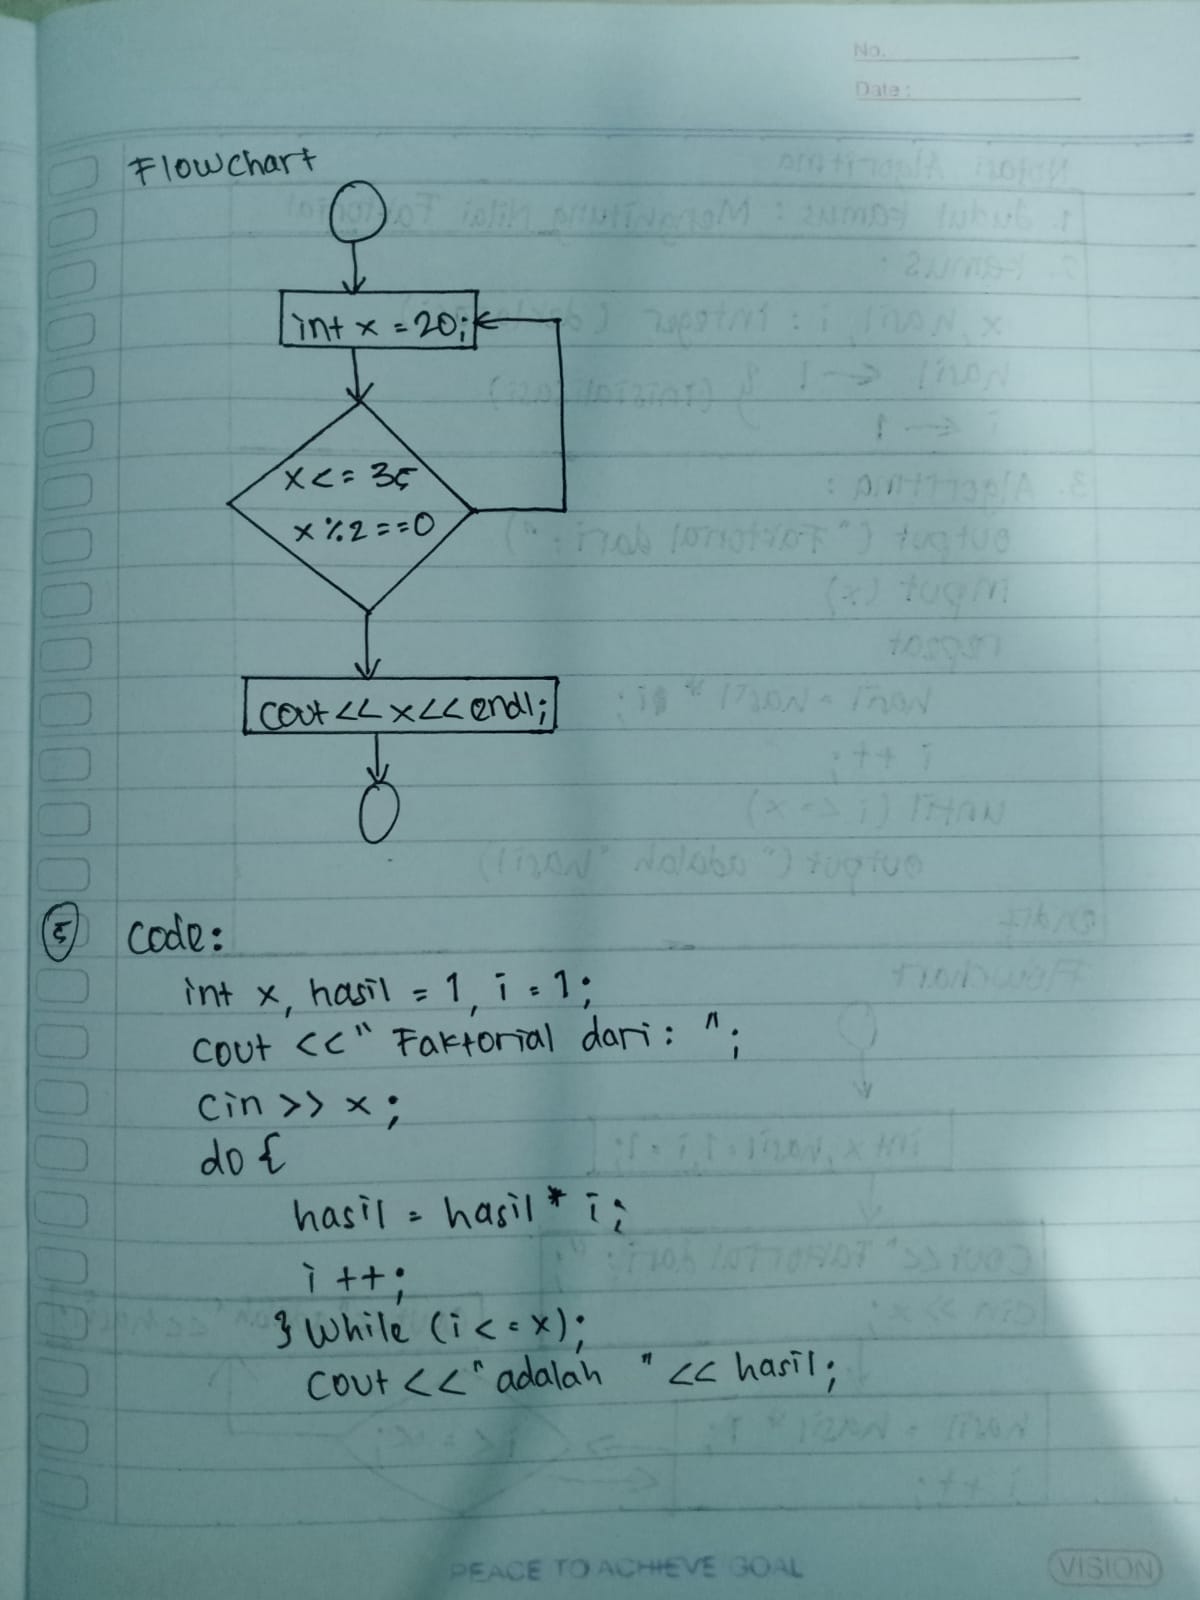 No.
Date:
Flowchart
int x = 20;
x <= 35
x % 2 == 0
cout << x << endl;
5 Code:
int x, hasil = 1, i = 1;
cout << " Faktorial dari : ";
cin >> x ;
do {
hasil = hasil * i ;
i ++ ;
} While (i <= x);
cout << "adalah " << hasil;
PEACE TO ACHIEVE GOAL
VISION